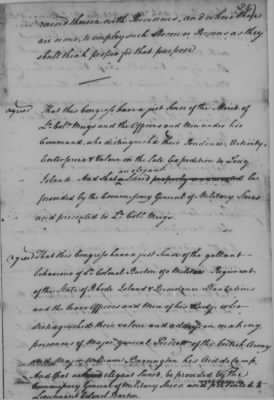 and where these
are none, to employ such Person or Persons as they
shall think proper for that purpose
agreed That this Congress have a just Sense of the Merit of
Lt. Colo. Meigs and the Officers and Men under his
Command, who distinguished their Prudence, Activity,
Enterprise & Valour in the late Expedition to Long
an elegant
Island. And that Sword be
provided by the Commissary General of Military Stores
and presented to Lt. Colo. Meigs.
agreed That this Congress have a just Sense of the gallant
behaviour of Lt. Colonel Barton of a Regiment
of the State of Rhode Island & Providence Plantations
and the brave Officers and Men of his Party, who
distinguished their valour and address in making
prisoner of Major General Prescott of the British Army
and Major William Barrington his Aid de Camp.
And that an elegant Sword, be provided by the
Commissary General of Military Stores and presented to
Lieutenant Colonel Barton.